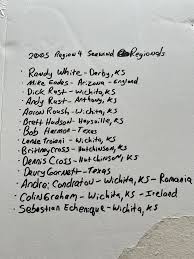 2005 Region 4 Seawind Regionals
· Randy White - Derby, KS
· Mike Eades - Arizona - England
· Dick Rust - Wichita, KS
· Andy Rust - Anthony, KS
· Aaron Roush - Wichita, KS
· Brett Hudson - Haysville, KS
· Bob Harmon - Texas
· Lance Troiani - Wichita, KS
· Britney Cross - Hutchinson, KS
· Dennis Cross - Hutchinson, KS
· Doury Garnett - Texas
· Andre Condratov - Wichita, KS - Romania
· Colin Graham - Wichita, KS - Ireland
· Sebastian Echenique - Wichita, KS